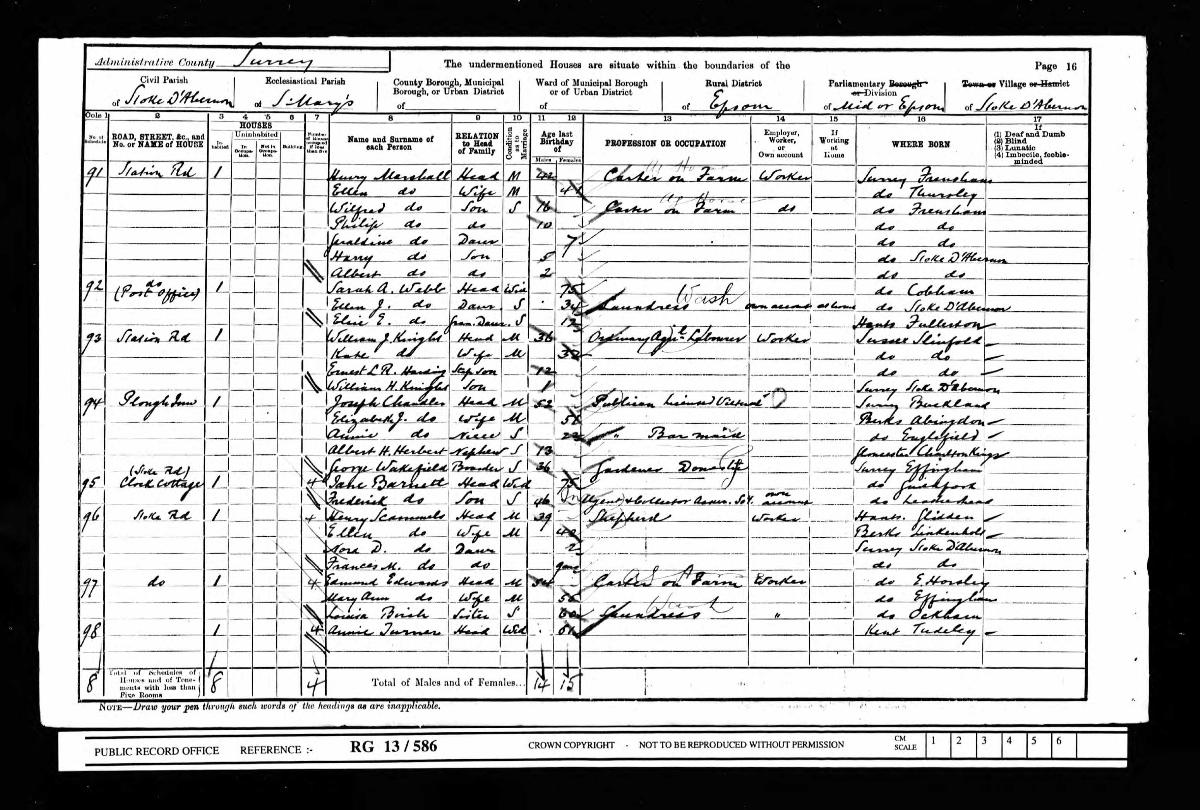 Administrative County Surrey The undermentioned Houses are situate within the boundaries of the Page 16
Civil Parish Ecclesiastical Parish County Borough, Municipal Borough, or Urban District Ward of Municipal Borough or of Urban District Rural District Parliamentary Borough or Division Town or Village or Hamlet
of Stoke D'Abernon of St Mary's of of of Epsom of Mid or Epsom of Stoke D'Abernon
Cols 1 2 3 4 5 6 7 8 9 10 11 12 13 14 15 16 17
No. of Schedule ROAD, STREET, &c., and No. or NAME of HOUSE HOUSES Inhabited Uninhabited In Occupation Not in Occupation Building Name and Surname of each Person RELATION to Head of Family Condition as to Marriage Age last Birthday of Males Females PROFESSION OR OCCUPATION Employer, Worker, or Own account If Working at Home WHERE BORN If (1) Deaf and Dumb (2) Blind (3) Lunatic (4) Imbecile, feeble-minded
91 Station Rd 1 Henry Marshall Head M 42 Carter on Farm Worker Surrey Frensham
Ellen do Wife M 41 do Thursley
Wilfred do Son S 16 Carter on Farm do do Frensham
Philip do do 10 do do
Geraldine do Daur 7 do do
Harry do Son 5 do Stoke D'Abernon
Albert do do 2 do do
92 do (Post Office) 1 Sarah A. Webb Head Wid 75 do Cobham
Ellen J. do Daur S 34 Laundress Wash own account at home do Stoke D'Abernon
Elsie E. do Gran. Daur. S 12 Hants Fullerton
93 Station Rd 1 William J. Knight Head M 36 Ordinary Agri. Labourer Worker Sussex Slinfold
Kate do Wife M 32 do do
Ernest L. R. Harding Step son 12 do do
William H. Knight Son 1 Surrey Stoke D'Abernon
94 Plough Inn 1 Joseph Chandler Head M 52 Publican Licensed Surrey Buckland
Elizabeth J. do Wife M 51 Berks Abingdon
Annie do Niece S 22 " Barmaid do Englefield
Albert H. Herbert Nephew S 13 Gloucester Charlton Kings
George Wakefield Boarder S 36 Gardener Domestic Surrey Effingham
95 (Stoke Rd) Clock Cottage 1 4 Jane Barnett Head Wid 75 do Guildford
Frederick do Son S 46 Agent & Collector own account do Leatherhead
96 Stoke Rd 1 4 Henry Scammels Head M 39 Shepherd Worker Hants.
Ellen do Wife M 40 Berks Linkenholt
Nora D. do Daur 2 Surrey Stoke D'Abernon
Frances M. do do do do
97 do 1 4 Edmund Edwards Head M 54 Carter on Farm Worker do E. Horsley
Mary Ann do Wife M 56 do Effingham
Louisa Sister S 60 Laundress Wash " do Ockham
98 1 4 Annie Turner Head Wid 61 Kent Tudeley
8 Total of Schedules of Houses and of Tenements with less than Five Rooms 8 4 Total of Males and of Females... 14 15
NOTE—Draw your pen through such words of the headings as are inapplicable.
PUBLIC RECORD OFFICE REFERENCE :- RG 13 / 586 CROWN COPYRIGHT - NOT TO BE REPRODUCED WITHOUT PERMISSION CM SCALE 1 2 3 4 5 6